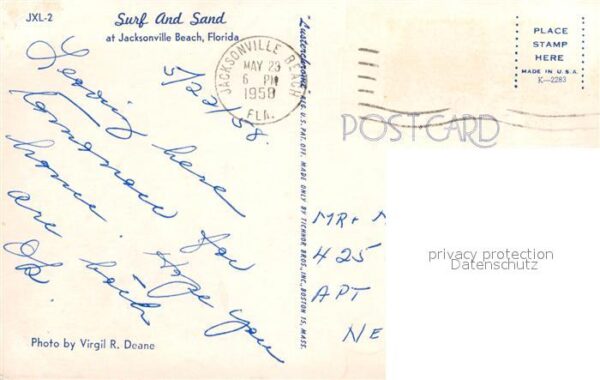 JXL-2
Surf And Sand
at Jacksonville Beach, Florida
5/23/58.
Leaving here
tomorrow for
home. Hope you
are both
ok.
Photo by Virgil R. Deane
JACKSONVILLE BEACH
MAY 23
6 PM
1958
FLA.
"Lusterchrome" REG. U.S. PAT. OFF. MADE ONLY BY TICHNOR BROS., INC., BOSTON 15, MASS.
PLACE
STAMP
HERE
MADE IN U.S.A.
K—2283
POST CARD
MR + M
425
APT
NE
privacy protection
Datenschutz